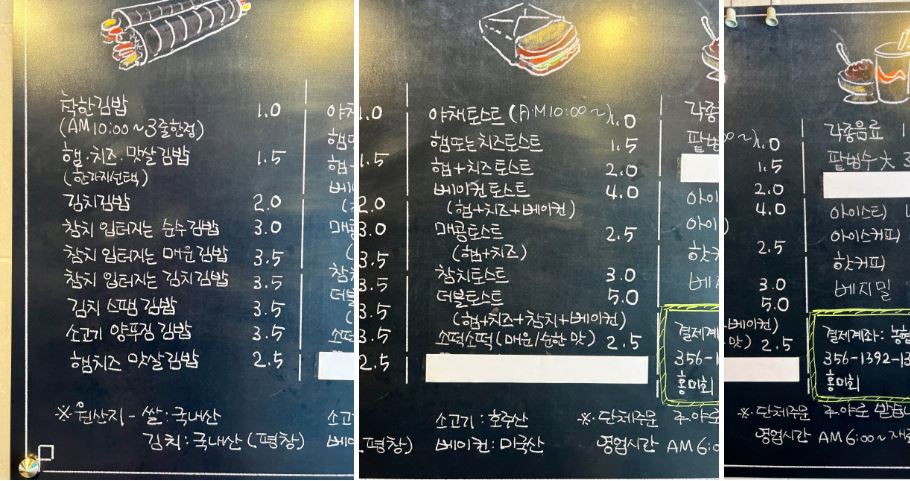 착한김밥 1.0
(AM10:00~3줄한정)
햄·치즈·맛살김밥 1.5
(한가지선택)
김치김밥 2.0
참치 입터지는 순수김밥 3.0
참치 입터지는 매운김밥 3.5
참치 입터지는 김치김밥 3.5
김치 스팸 김밥 3.5
소고기 양푸짐 김밥 3.5
햄치즈 맛살김밥 2.5
※ 원산지 - 쌀:국내산
김치:국내산(평창)
야채토스트(AM10:00~) 1.0
햄또는치즈토스트 1.5
햄+치즈토스트 2.0
베이컨토스트 4.0
(햄+치즈+베이컨)
매콤토스트 2.5
(햄+치즈)
참치토스트 3.0
더블토스트 5.0
(햄+치즈+참치+베이컨)
소떡소떡(매운/순한 맛) 2.5
소고기:호주산
베이컨:미국산
각종음료
팥빙수大
아이스티
아이스커피
핫커피
베지밀
결제계좌:
356-1392-13
홍미회
※단체주문
영업시간 AM6:00~